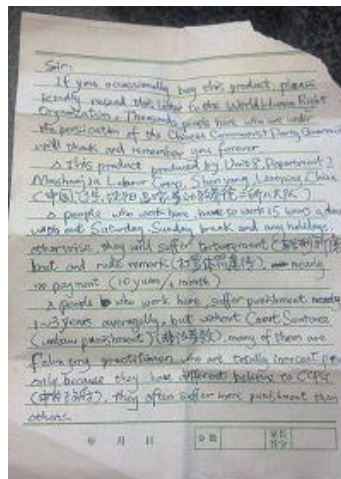 Sir:
If you occassionally buy this product, please
kindly resend this letter to the World Human Right
Organization. Thousands people here who are under
the persicution of the Chinese Communist Party Government
will thank and remember you forever.
This product produced by Unit 8, Department 2
Mashanjia Labour Camp, Shenyang, Liaoning, China
people who work here, have to work 15 hours a day
with out Saturday, Sunday break and any holidays,
otherwise, they will suffer torturement
beat and rude remark nearly
no payment (10 yuan/1 month)
people who work here, suffer punishment nearly
1~3 years averagelly, but without Court Sentence
(unlaw punishment) many of them are
Falun gong practitioner, who are totally innocent
only because they have different believe to CCPG
they often suffer more punishment than
others.
年 月 日